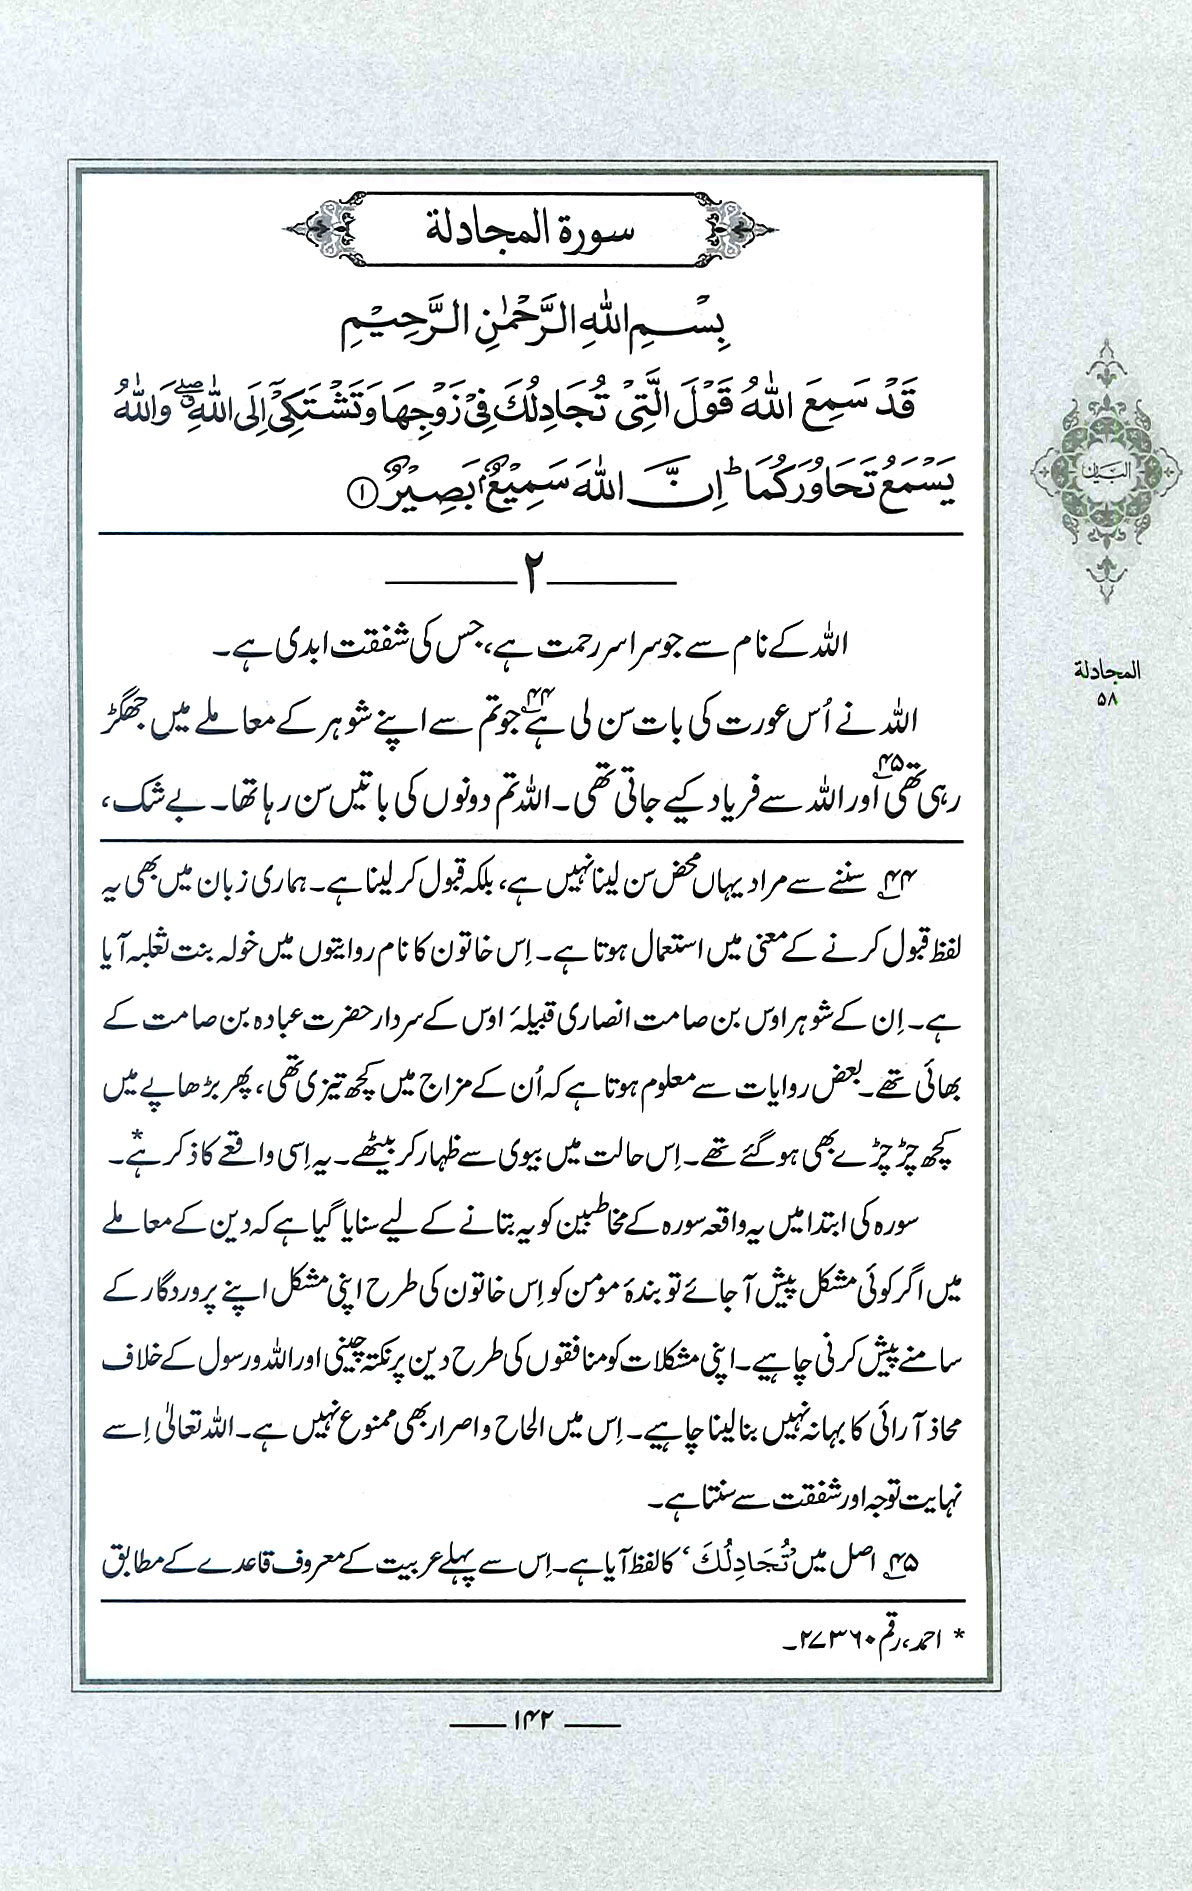 سورة المجادلة
بِسْمِ اللهِ الرَّحْمٰنِ الرَّحِيْمِ
قَدْ سَمِعَ اللهُ قَوْلَ الَّتِیْ تُجَادِلُكَ فِیْ زَوْجِهَا وَتَشْتَكِیْٓ اِلَی اللهِ ۖ وَاللهُ
يَسْمَعُ تَحَاوُرَكُمَا ؕ اِنَّ اللهَ سَمِيْعٌۢ بَصِيْرٌ ﴿۱﴾
۲
اللہ کے نام سے جو سراسر رحمت ہے، جس کی شفقت ابدی ہے۔
اللہ نے اُس عورت کی بات سن لی ہے ۴۴ جو تم سے اپنے شوہر کے معاملے میں جھگڑ
رہی تھی ۴۵ اور اللہ سے فریاد کیے جاتی تھی۔ اللہ تم دونوں کی باتیں سن رہا تھا۔ بے شک،
۴۴؎ سننے سے مراد یہاں محض سن لینا نہیں ہے، بلکہ قبول کر لینا ہے۔ ہماری زبان میں بھی یہ
لفظ قبول کرنے کے معنی میں استعمال ہوتا ہے۔ اِس خاتون کا نام روایتوں میں خولہ بنت ثعلبہ آیا
ہے۔ اِن کے شوہر اوس بن صامت انصاری قبیلۂ اوس کے سردار حضرت عبادہ بن صامت کے
بھائی تھے۔ بعض روایات سے معلوم ہوتا ہے کہ اُن کے مزاج میں کچھ تیزی تھی، پھر بڑھاپے میں
کچھ چڑچڑے بھی ہو گئے تھے۔ اِس حالت میں بیوی سے ظہار کر بیٹھے۔ یہ اِسی واقعے کا ذکر ہے*۔
سورہ کی ابتدا میں یہ واقعہ سورہ کے مخاطبین کو یہ بتانے کے لیے سنایا گیا ہے کہ دین کے معاملے
میں اگر کوئی مشکل پیش آ جائے تو بندۂ مومن کو اِس خاتون کی طرح اپنی مشکل اپنے پروردگار کے
سامنے پیش کرنی چاہیے۔ اپنی مشکلات کو منافقوں کی طرح دین پر نکتہ چینی اور اللہ ورسول کے خلاف
محاذ آرائی کا بہانہ نہیں بنا لینا چاہیے۔ اِس میں الحاح و اصرار بھی ممنوع نہیں ہے۔ اللہ تعالیٰ اِسے
نہایت توجہ اور شفقت سے سنتا ہے۔
۴۵؎ اصل میں ’تُجَادِلُكَ‘ کا لفظ آیا ہے۔ اِس سے پہلے عربیت کے معروف قاعدے کے مطابق
* احمد، رقم ۲۷۳۶۰۔
۱۴۲
البیان
المجادلة
۵۸